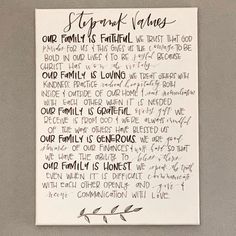 Stepanek Values
OUR FAMILY IS FAITHFUL. WE TRUST THAT GOD
provides FOR US & THIS GIVES US THE courage TO BE
BOLD IN OUR LIVES & TO BE joyful BECAUSE
CHRIST HAS won the victory.
OUR FAMILY IS LOVING. WE TREAT OTHERS WITH
KINDNESS, PRACTICE radical hospitality BOTH
INSIDE & OUTSIDE OF OUR HOME &
WITH EACH OTHER WHEN IT IS NEEDED.
OUR FAMILY IS GRATEFUL. every gift WE
RECEIVE IS FROM GOD & WE'RE always mindful
OF THE WAYS OTHERS HAVE BLESSED US.
OUR FAMILY IS GENEROUS. WE ARE good
stewards OF OUR FINANCES & SO THAT WE
HAVE THE ABILITY TO bless others.
OUR FAMILY IS HONEST. WE speak the truth
EVEN WHEN IT IS DIFFICULT
WITH EACH OTHER OPENLY AND give &
receive COMMUNICATION WITH LOVE.